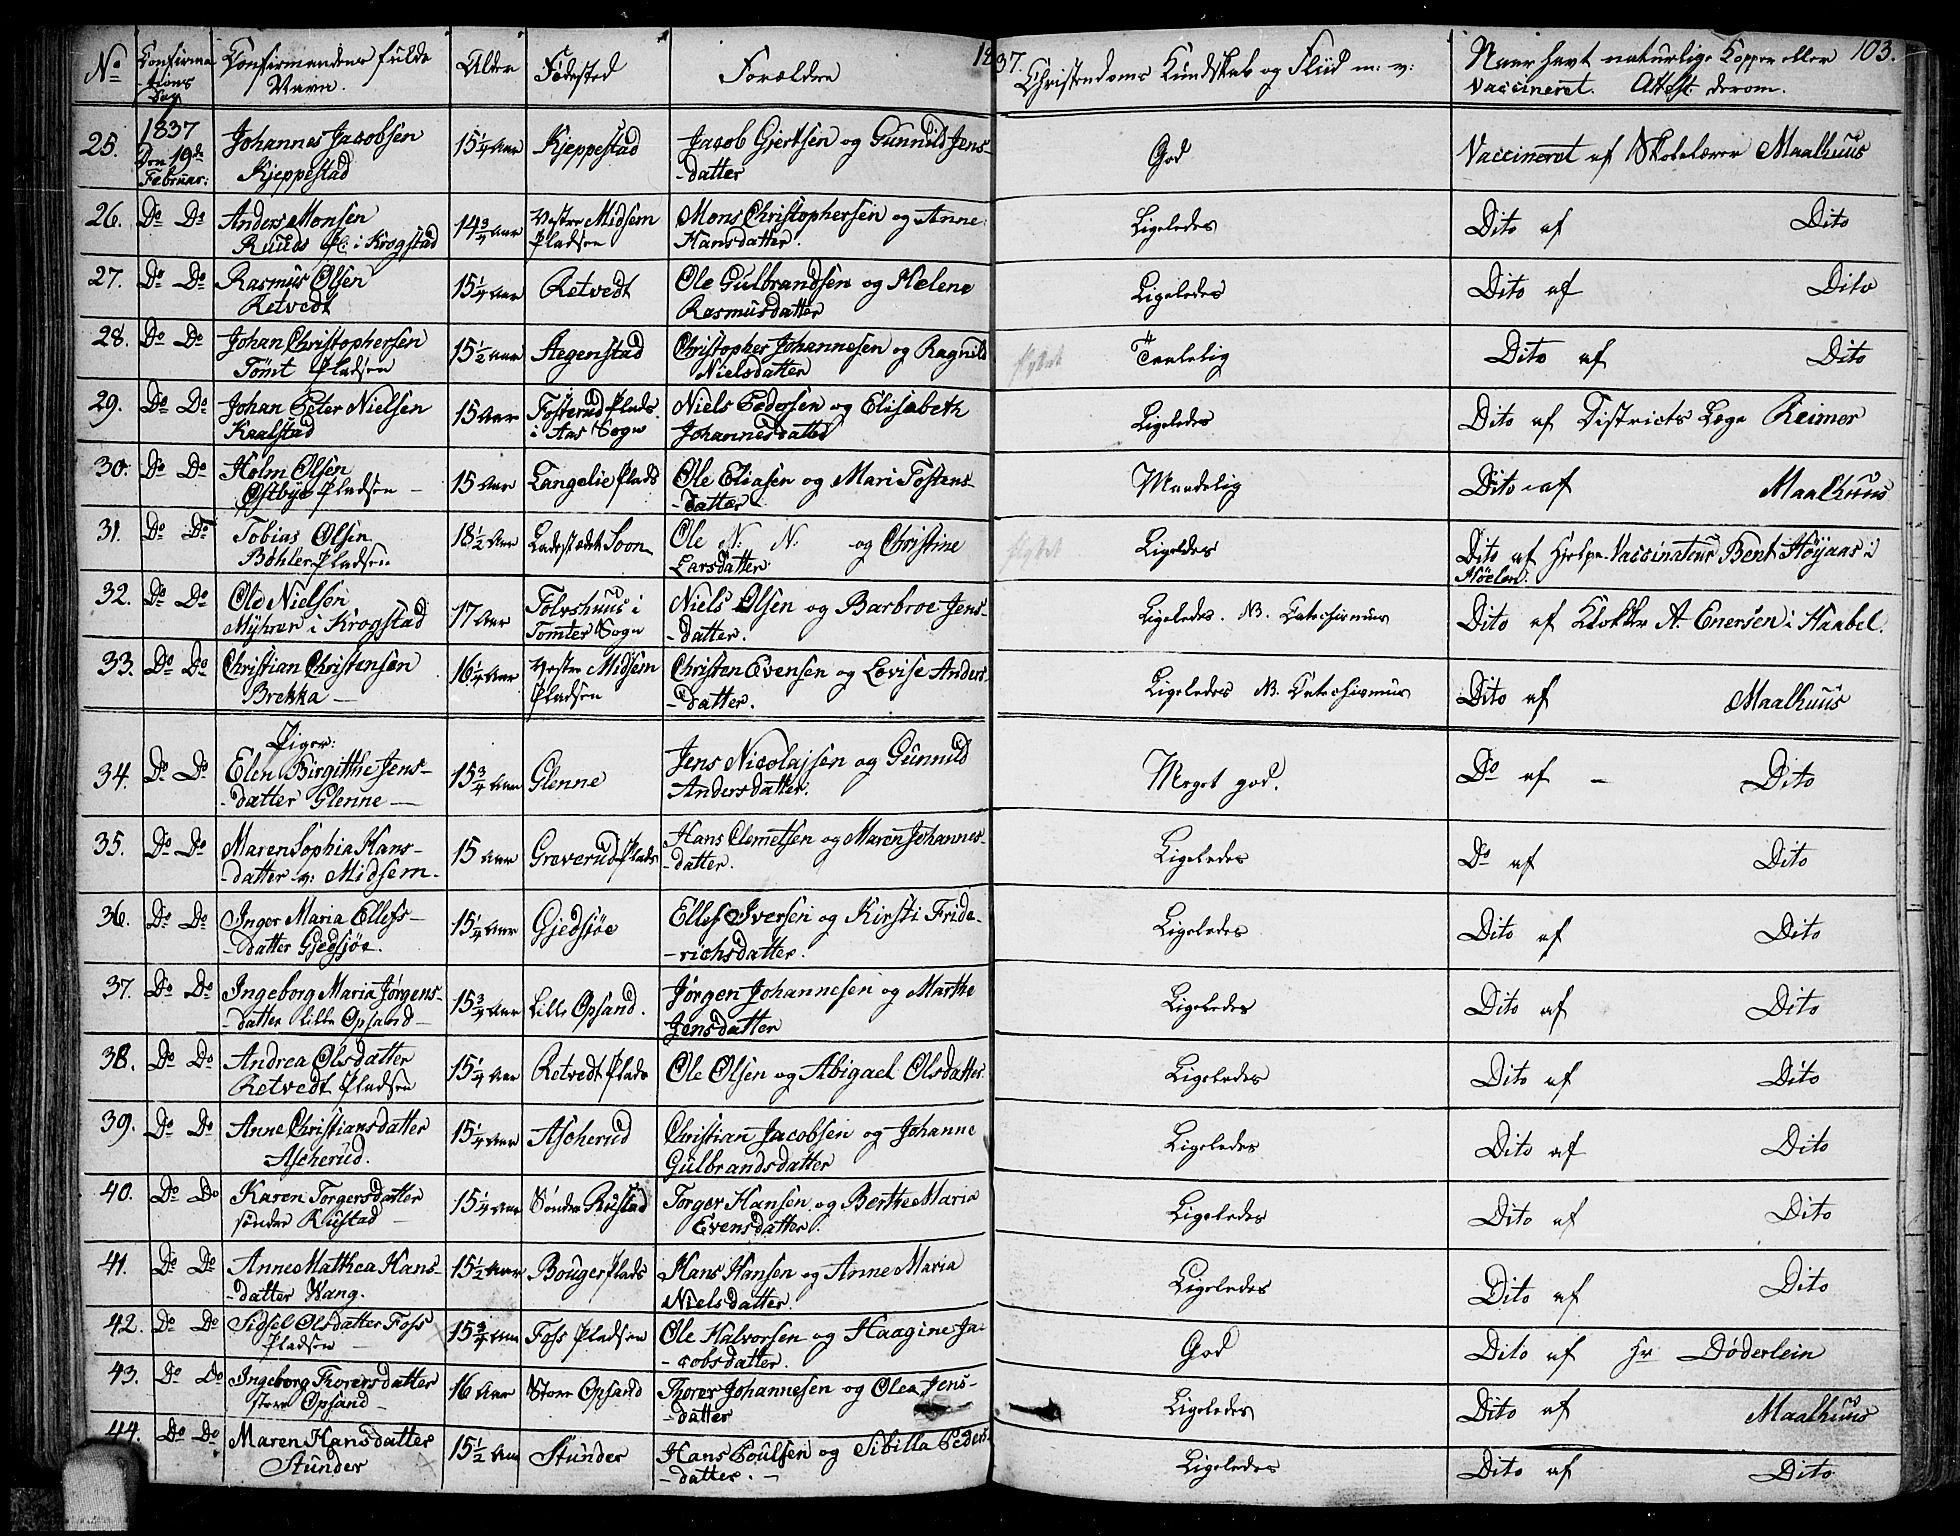 1837. 103.
No Confirmations Dag Confirmandens fulde Navn. Alder Fødested Forældre Christendoms Kundskab og Fliid m: v: Naar havt naturlige Kopper eller Vaccineret. Attest derom.
25. 1837 Den 19de Februar: Johannes Jacobsen Kjeppestad 15 1/4 Aar Kjeppestad Jacob Gjertsen og Gunnild Jens-datter God Vaccineret af Skolelærer Maalhuus
26. Do Do Anders Monsen Ruuds Pl: i Krogstad 14 3/4 Aar Vestre Midsem Pladsen Mons Christophersen og Anne Hansdatter. Ligeledes Dito af Dito
27. Do Do Rasmus Olsen Retvedt 15 1/4 Aar Retvedt Ole Gulbrandsen og Helene Rasmusdatter Ligeledes Dito af Dito
28. Do Do Johan Christophersen Tomt Pladsen 15 1/2 Aar Aegenstad Christopher Johannesen og Ragnild Nielsdatter flyttet Taalelig Dito af Dito
29. Do Do Johan Peter Nielsen Kaalstad 15 Aar Fosterud Plads i Aas Sogn Niels Pedersen og Elisabeth Johannesdatter Ligeledes Dito af Districts Læge Reimer
30. Do Do Holm Olsen Østbye Pladsen - 15 Aar Langelie Plads Ole Eliasen og Mari Tostens-datter Maadelig Dito af Maalhuus
31. Do Do Tobias Olsen Bøhler Pladsen 18 1/2 Aar Ladestædet Soon Ole N: N: og Christine Larsdatter flyttet Ligeledes Dito af Hjelpe-Vaccinateur Bent Høyaas i Høelen.
32. Do Do Ole Nielsen Myhrer i Krogstad 17 Aar Tolvshuus i Tomter Sogn Niels Olsen og Barbroe Jens-datter. Ligeledes. NB. Catechismus Dito af Klokker A. Enersen i Haabel.
33. Do Do Christian Christensen Brekka - 16 1/4 Aar Vestre Midsem Pladsen Christen Evensen og Lovise Anders-datter. Ligeledes NB. Catechismus Dito af Maalhuus
Piger:
34. Do Do Elen Birgitthe Jens-datter Glenne - 15 3/4 Aar Glenne Jens Nicolajsen og Gunnild Andersdatter. Meget god. Do af - Dito
35. Do Do Maren Sophia Hans-datter v: Midsem. 15 Aar Greverud Plads Hans Clemetsen og Maren Johannes-datter. Ligeledes Do af Dito
36. Do Do Inger Maria Ellefs-datter Gjedsjøe. 15 1/4 Aar Gjedsjøe Ellef Iversen og Kirsti Fride-richsdatter. Ligeledes Dito af Dito
37. Do Do Ingeborg Maria Jørgens-datter Lille Opsand - 15 3/4 Aar Lille Opsand. Jørgen Johannesen og Marthe Jensdatter Ligeledes Dito af Dito
38. Do Do Andrea Olsdatter Retvedt Pladsen 15 1/4 Aar Retvedt Plads Ole Olsen og Abigael Olsdatter Ligeledes Dito af Dito
39. Do Do Anne Christiansdatter Ascherud. 15 1/4 Aar Ascherud Christian Jacobsen og Johanne Gulbrandsdatter Ligeledes Dito af Dito
40. Do Do Karen Torgersdatter sönder Rustad - 15 1/4 Aar Sönder Rustad Torger Hansen og Berthe Maria Evensdatter. Ligeledes Dito af Dito
41. Do Do Anne Mathea Hans-datter Vang. 15 1/2 Aar Bouger Plads Hans Hansen og Anne Maria Nielsdatter. Ligeledes Dito af Dito
42. Do Do Sidsel Olsdatter Foss Pladsen - 15 3/4 Aar Foss Pladsen Ole Halvorsen og Haagine Ja-cobsdatter. God Dito af Hr Döderlein
43. Do Do Ingeborg Thorersdatter store Opsand - 16 Aar Store Opsand Thorer Johannesen og Olea Jens-datter Ligeledes Dito af Maalhuus
44. Do Do Maren Hansdatter Stunder 15 1/2 Aar Stunder Hans Poulsen og Sibilla Peders-datter. - Ligeledes Dito af Dito